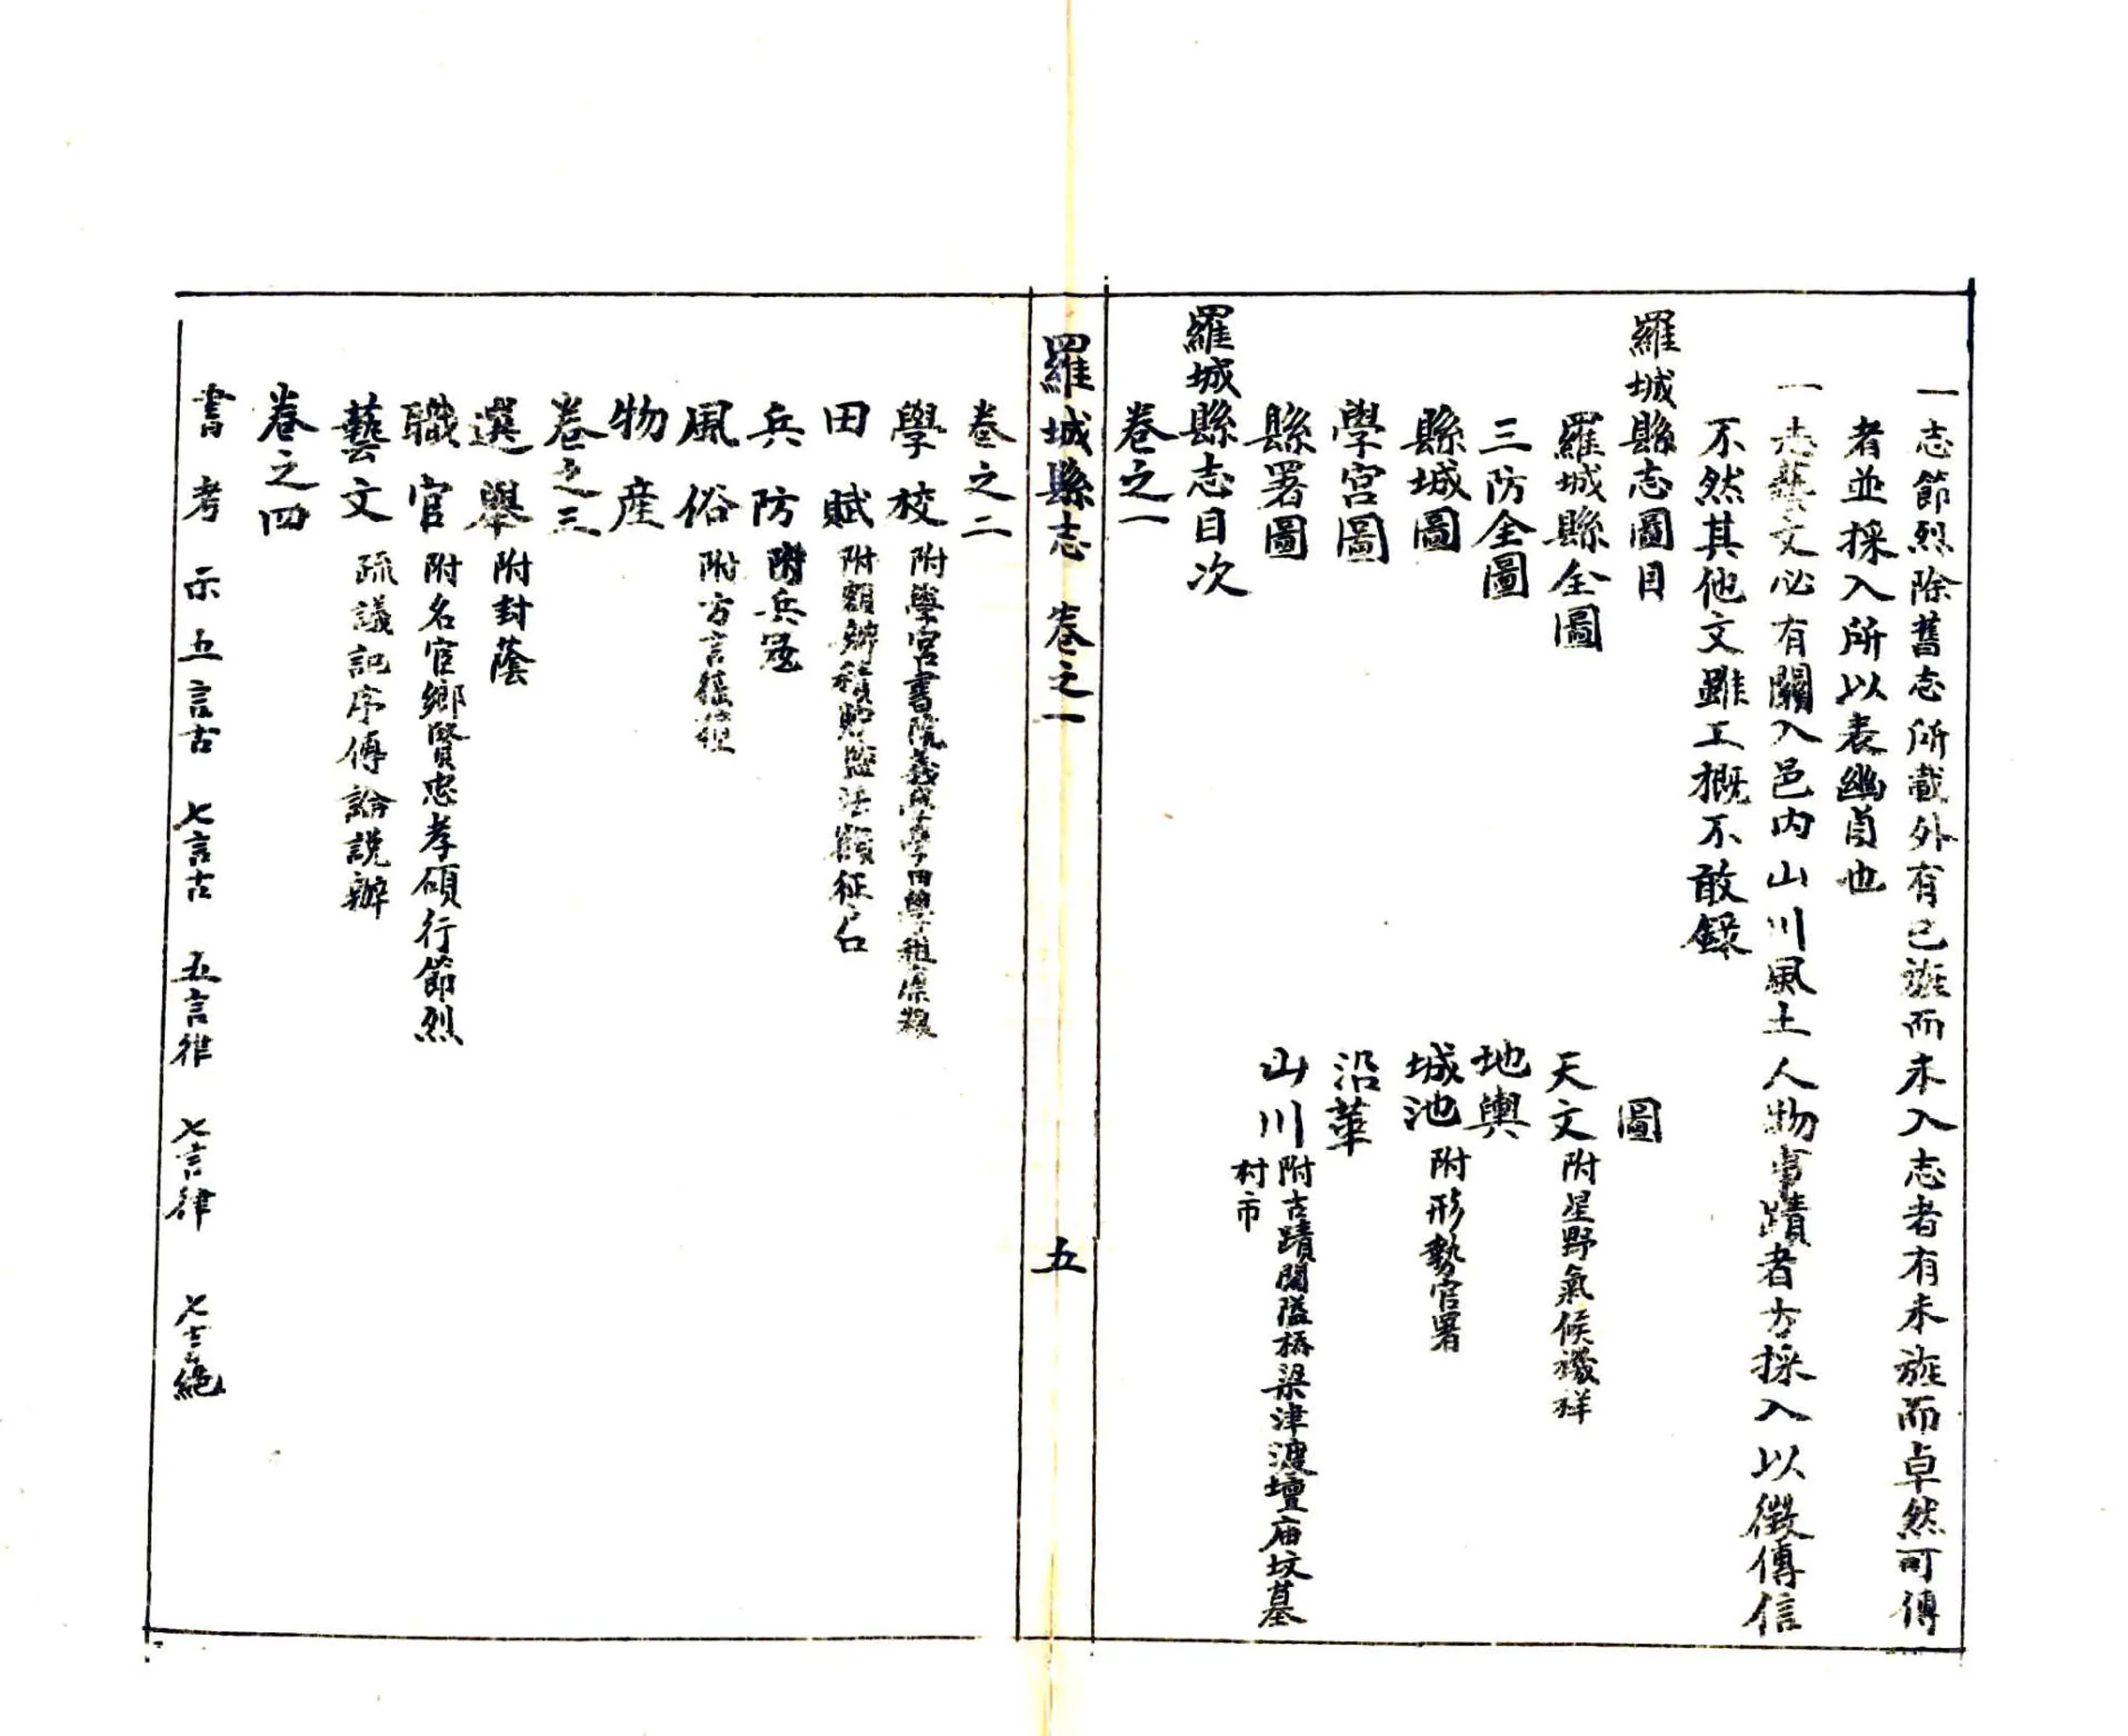 一志節烈除舊志所載外有已旌而未入志者有未旌而卓然可傳
者並採入所以表幽貞也
一志藝文必有關入邑内山川風土人物事蹟者方採入以徵傳信
不然其他文雖工概不敢錄
羅城縣志圖目
羅城縣全圖
三防全圖
縣城圖
學宫圖
縣署圖
羅城縣志目次
卷之一
圖
天文 附星野氣候禨祥
地輿
城池 附形勢官署
沿革
山川 附古蹟關隘橋梁津渡壇庙坟墓
村市
羅城縣志 卷之一 五
卷之二
學校 附學宮書院義學學田學租廩粮
田賦 附額辦積貯鹽法額征
兵防 附兵
風俗 附方言猺獞
物産
卷之三
選舉 附封蔭
職官 附名宦鄉賢忠孝碩行節烈
藝文 疏議記序傳論説辦
卷之四
書 考 示 五言古 七言古 五言律 七言律 七言絶